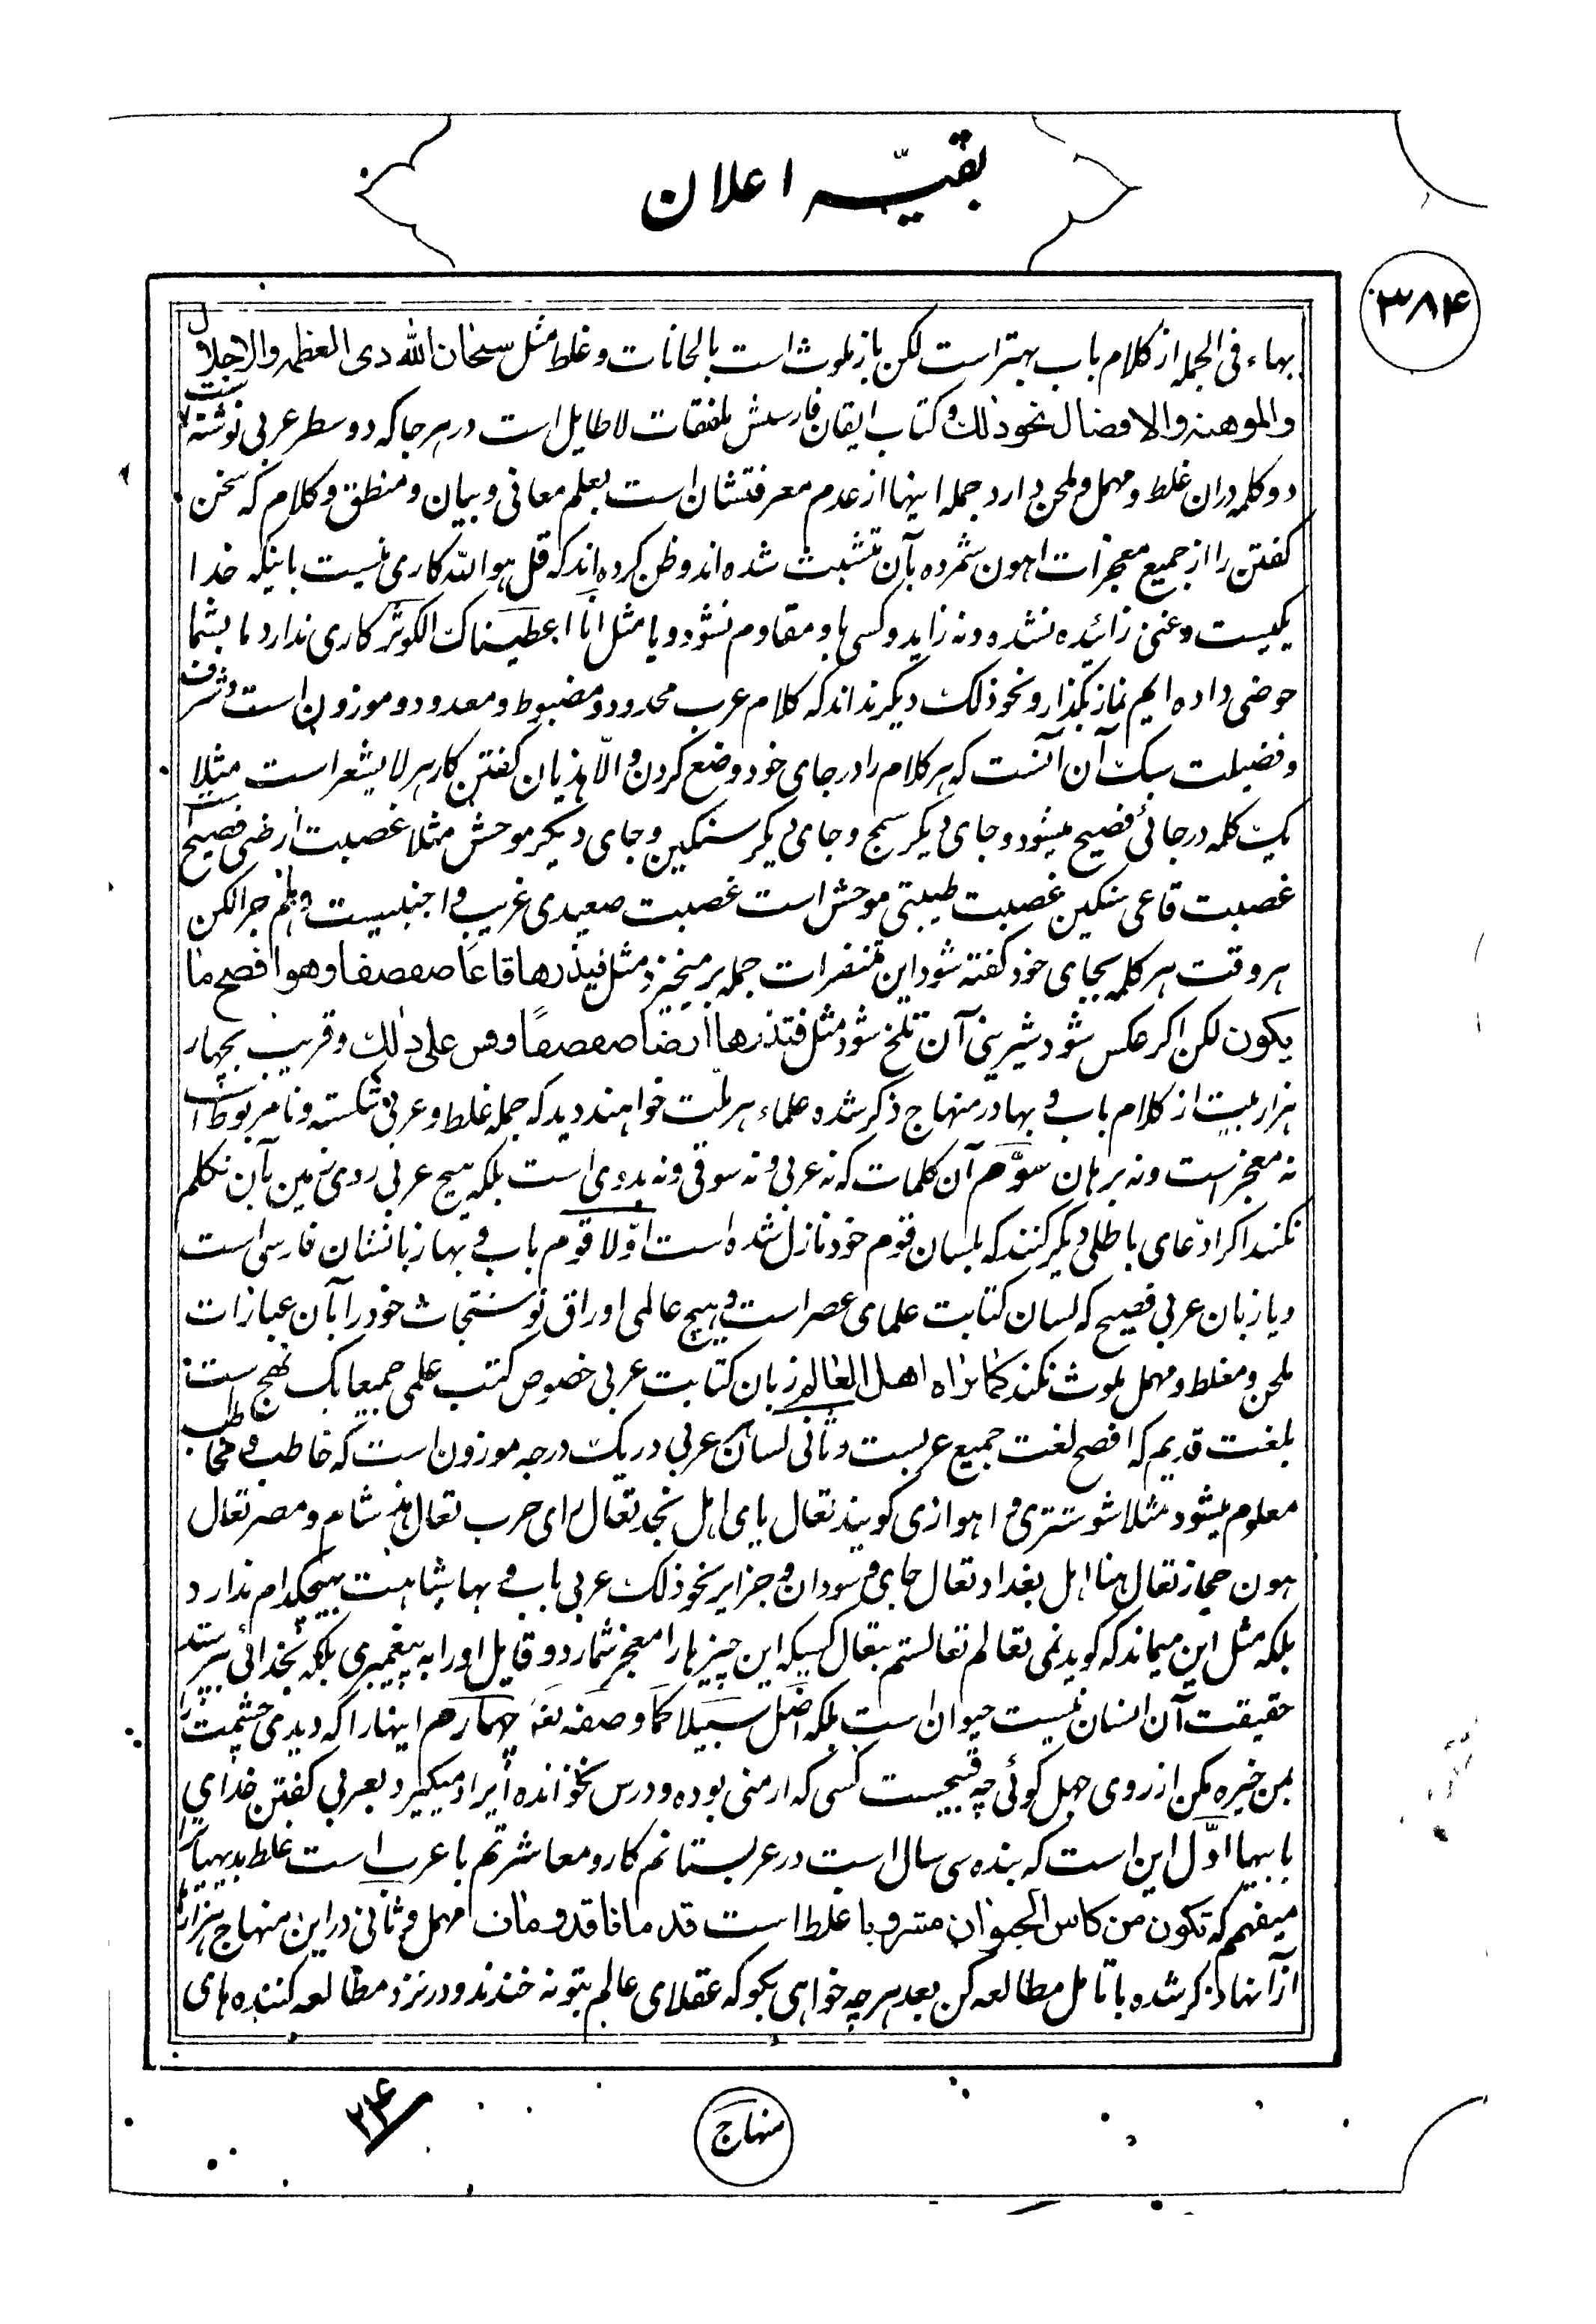 بقیّه اعلان
۳۸۴
بهاء فی الجمله از کلام باب بهتر است لکن باز ملوث است بالحانات و غلط مثل سبحان الله ذی العظمه والاجلال
والموهبه والافضال نحو ذلک و کتاب ایقان فارسش ملفقات لا طایل است در هر جا که دو سطر عربی نوشته است
دو کلمه دران غلط و مهمل و ملحن دارد جمله اینها از عدم معرفتشان است بعلم معانی و بیان و منطق و کلام که سخن
کفتن را از جمیع معجزات اهون شمرده بآن متشبث شده اند و ظن کرده اند که قل هو الله کاری نیست باینکه خدا
یکیست و غنی زائیده نشده و نه زاید و کسی باو مقاوم نشود و یا مثل انا اعطیناک الکوثر کاری ندارد ما بشما
حوضی داده ایم نماز بکذار و نحو ذلک دیکر نداند که کلام عرب محدود و مضبوط و معدود و موزون است و شرف
و فضیلت سبک آن آنست که هر کلام را در جای خود وضع کردن و الّا هذیان کفتن کار هر لا یشعر است مثلا
یک کلمه در جائی فصیح میشود و جای دیکر سمج و جای دیکر سنکین و جای دیکر موحش مثلا غصبت ارضی فصیح است
غصبت قاعی سنکین غصبت طیبتی موحش است غصبت صعیدی غریب و اجنبیست و هلم جرا لکن
هر وقت هر کلمه بجای خود کفته شود این متنفرات جمله بر میخیزد مثل فیذرها قاعا صفصفا وهو افصح ما
یکون لکن اکر عکس شود شیرینی آن تلخ شود مثل فتذرها ارضا صفصفا وقس علی ذلک و قریب بچهار
هزار بیت از کلام باب و بها در منهاج ذکر شده علماء هر ملّت خواهند دید که جمله غلط و عربی شکسته و نامربوط است
نه معجز است و نه برهان سوّم آن کلمات که نه عربی و نه سوقی و نه بدوی است بلکه هیچ عربی روی زمین بآن تکلم
نکنند اکر ادّعای باطلی دیکر کنند که بلسان قوم خود نازل شده است اوّلا قوم باب و بها زبانشان فارسی است
و یا زبان عربی فصیح که لسان کتابت علمای عصر است و هیچ عالمی اوراق نوشتجات خود را بآن عبارات
ملحن و مغلط و مهمل ملوث نکند کما یراه اهل العالم زبان کتابت عربی خصوص کتب علمی جمیعا یک نهج است
بلغت قدیم که افصح لغت جمیع عربست و ثانی لسان عربی در یک درجه موزون است که خاطب و مخاطب
معلوم میشود مثلا شوشتری و اهوازی کویند تعال یای اهل نجد تعال رای حرب تعال شام و مصر تعال
هون حجاز تعال هنا اهل بغداد تعال جای و سودان و جزایر نحو ذلک عربی باب و بها شباهت بهیچکدام ندارد
بلکه مثل این میماند که کوید نمی تعالم تعالستم بتعال کسیکه این چیزها را معجز شمارد و قایل او را به پیغمبری بلکه بخدائی بپرستد
حقیقت آن انسان نیست حیوان است بلکه اضل سبیلا کما وصفه چهارم اینها را که دیدی چشمت را
بمن خیره مکن از روی جهل کوئی چه قبیحست کسی که ارمنی بوده و درس نخوانده ایراد میکیرد بعربی کفتن خدای
بابیها اوّل این است که بنده سی سال است در عربستانم کار و معاشرتم با عرب است غلط بدیهیات را
میفهمم که تکون من کاس الحیوان مشروبا غلط است قد مافا قدومان مهمل و ثانی در این منهاج هزارها
از آنها ذکر شده با تامل مطالعه کن بعد هر چه خواهی بکو که عقلای عالم بتو نه خندند و در نزد مطالعه کننده های
منهاج